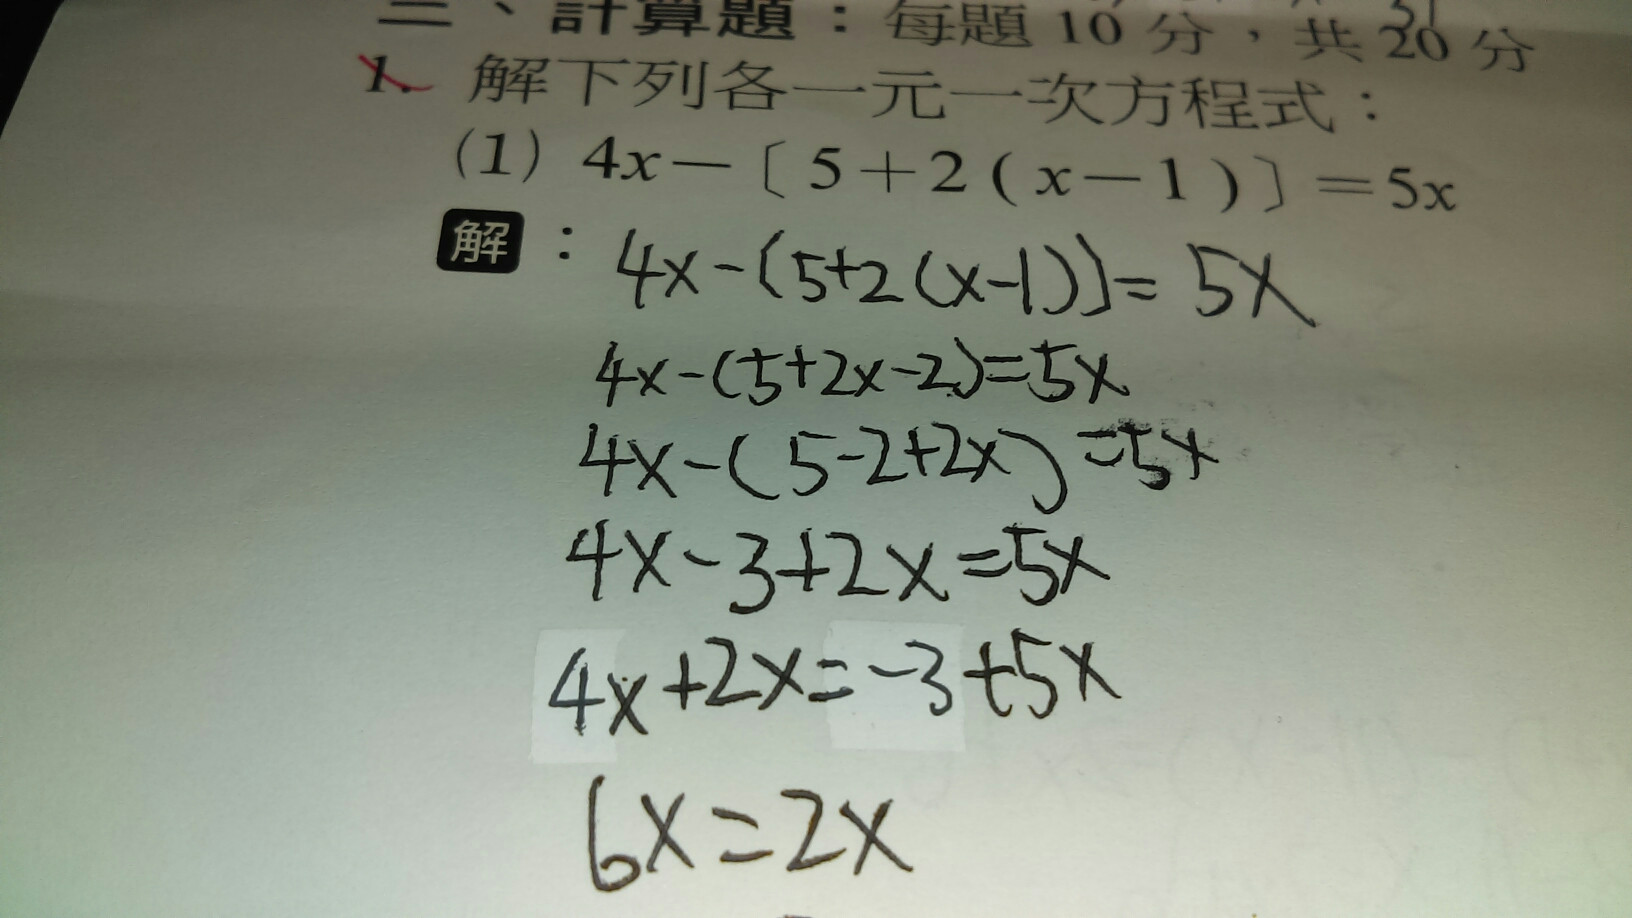 二、計算題：每題 10 分，共 20 分
1. 解下列各一元一次方程式：
(1) 4x－〔5＋2(x－1)〕＝5x
解：4x-(5+2(x-1))=5x
4x-(5+2x-2)=5x
4x-(5-2+2x)=5x
4x-3+2x=5x
4x+2x=-3+5x
6x=2x